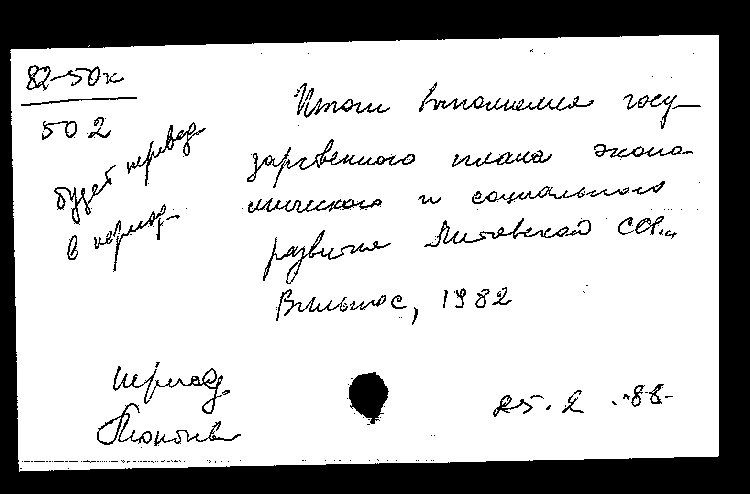 82-50к
502
будет перевед.
в период.
Итоги выполнения госу-
дарственного плана эконо-
мического и социального
развития Литовской ССР.,
Вильнюс, 1982
период
25.2.-88-